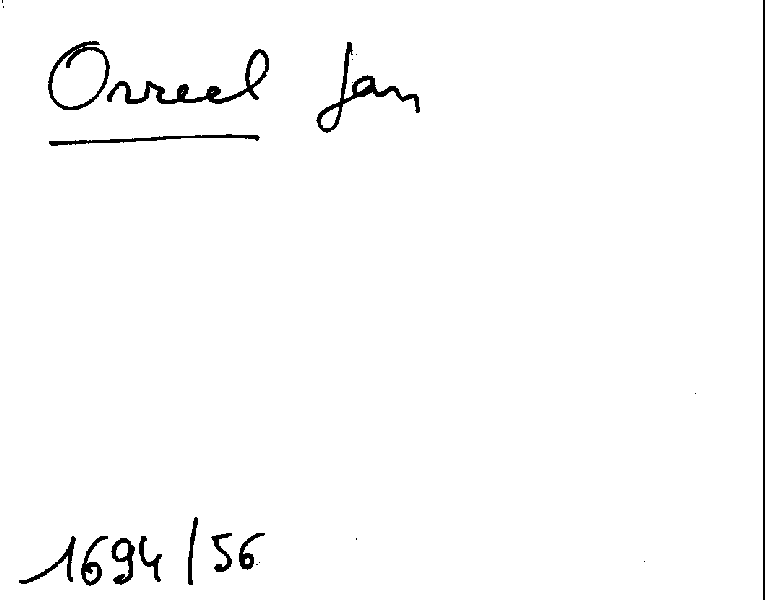 Orreel Jan
1694/56